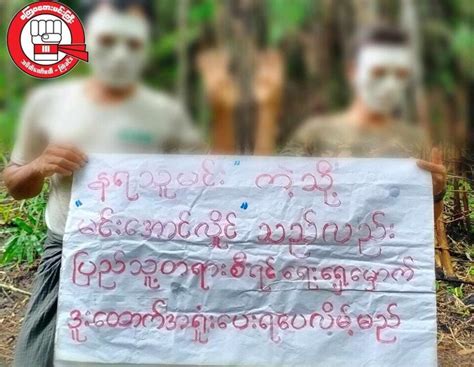 "နရသူမင်း" ကဲ့သို့
"မင်းအောင်လှိုင်" သည်လည်း
ပြည်သူ့တရားစီရင် ရေးရှေ့မှောက်
ဒူးထောက်အရှုံးပေးရပေလိမ့်မည်